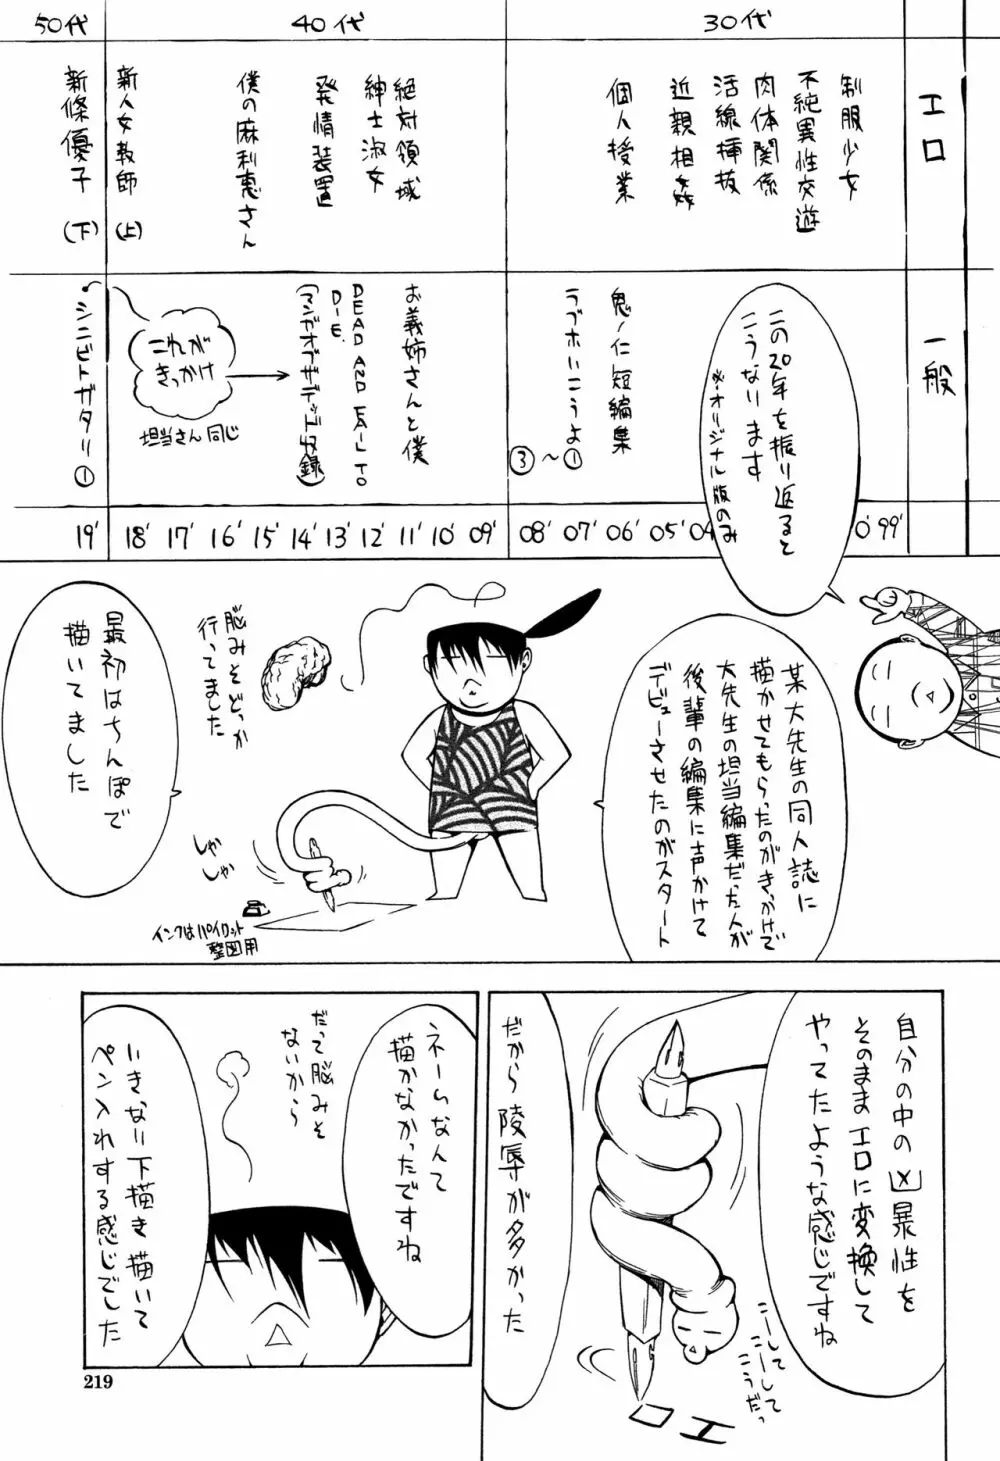 50代
40代
30代
エロ
制服少女
不純異性交遊
肉体関係
活線挿抜
近親相姦
個人授業
絶対領域
紳士淑女
発情装置
僕の麻利恵さん
新人女教師(上)
新條優子(下)
一般
鬼ノ仁短編集
ラブホいこうよ①
~
③
お義姉さんと僕
DEAD AND FAIL TO
DIE.
(マンガオブザデッド収録)
これが
きっかけ
担当さん同じ
シニビトガタリ①
19'
18'
17'
16'
15'
14'
13'
12'
11'
10'
09'
08'
07'
06'
05'
04
0'
99'
この20年を振り返ると
こうなります
※オリジナル版のみ
某大先生の同人誌に
描かせてもらったのがきっかけで
大先生の担当編集だった人が
後輩の編集に声かけて
デビューさせたのがスタート
脳みそどっか
行ってました
最初はちんぽで
描いてました
しゃ
しゃか
インクはパイロット
製図用
自分の中の凶暴性を
そのままエロに変換して
やってたような感じですね
こーしてこーしてこうだっ
エロ
だから陵辱が多かった
ネームなんて
描かなかったですね
だって脳みそ
ないから
いきなり下描き描いて
ペン入れする感じでした
219